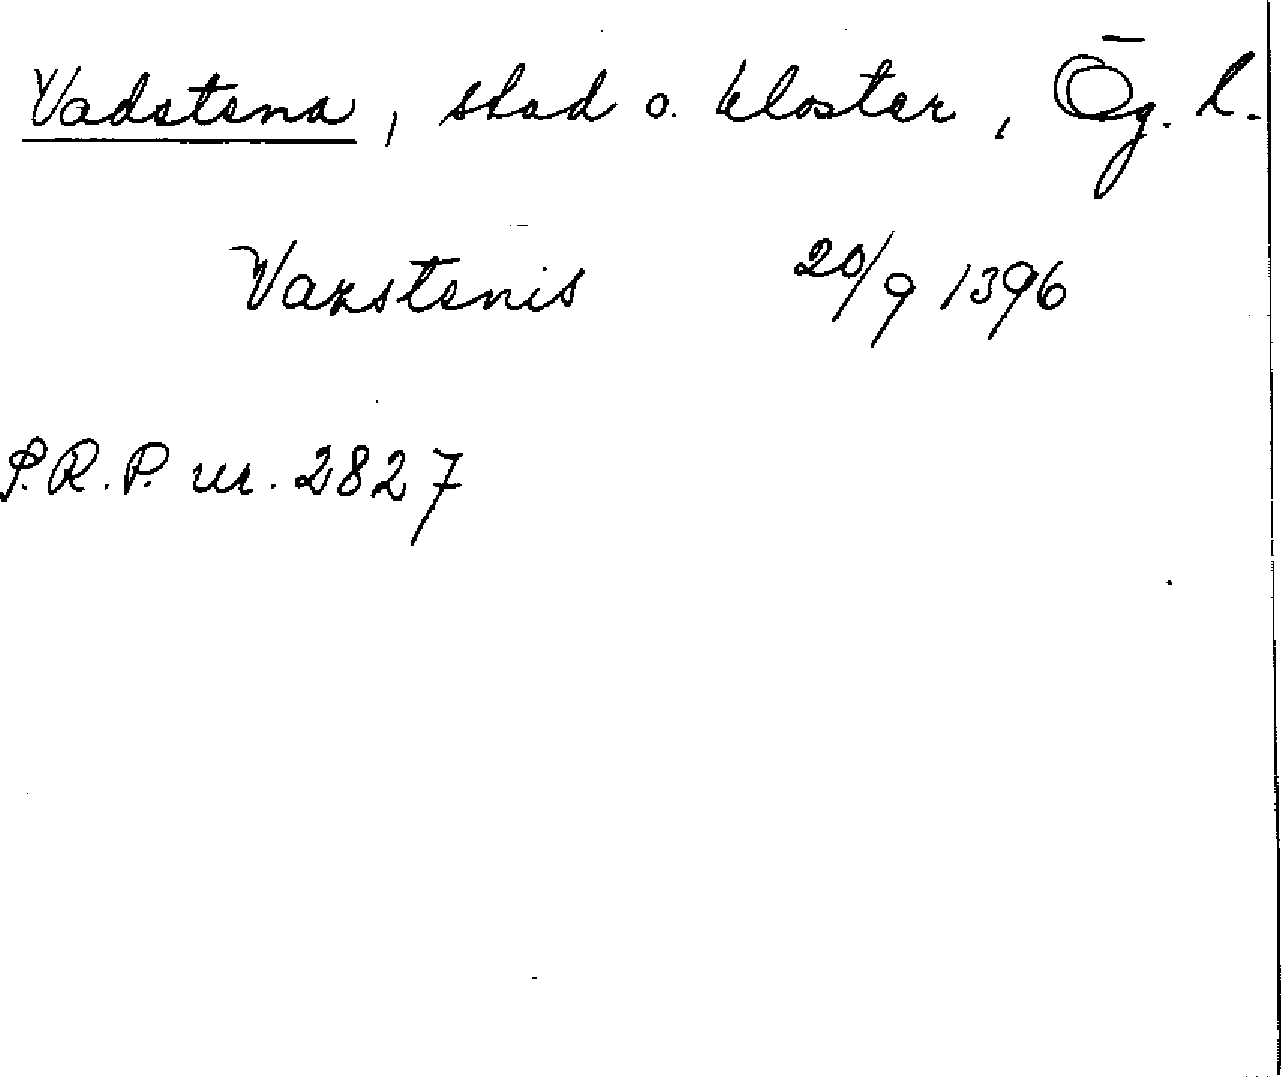 Vadstena, stad o. kloster, Ög. l.
Vazstenis 20/9 1396
S.R.P. nr. 2827